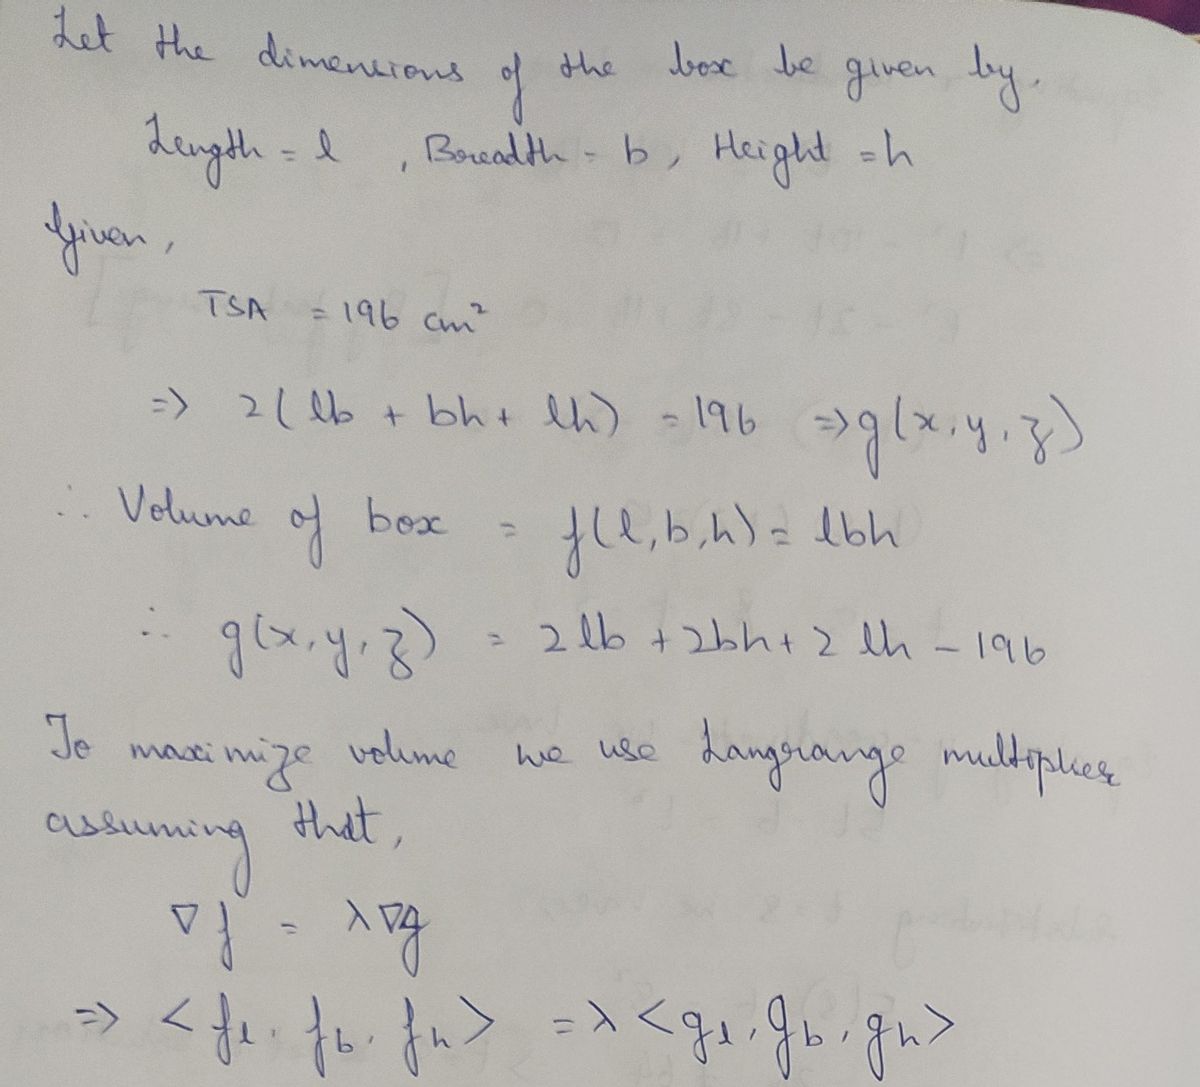 Let the dimensions of the box be given by.
Length = l , Breadth = b , Height = h
Given ,
TSA = 196 cm²
=> 2( lb + bh + lh ) = 196 => g(x, y, z)
∴ Volume of box = f(l, b, h) = lbh
∴ g(x, y, z) = 2 lb + 2bh + 2 lh - 196
To maximize volume we use Langrange multiplier
assuming that,
∇f = λ∇g
=> < fl, fb, fh > = λ < gl, gb, gh >